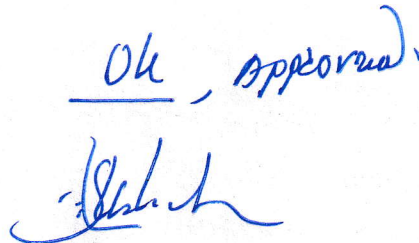 Ok, Approved.